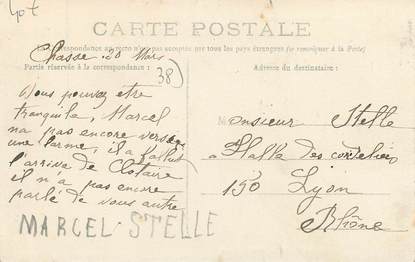 407
CARTE POSTALE
La Correspondance au recto n'est pas acceptée par tous les pays étrangers (se renseigner à la Poste)
Partie réservée à la correspondance :
Adresse du destinataire :
Chasse 30 Mars
38
Vous pouvez etre
tranquile, Marcel
na pas encore verser
une larme, il a fallut
l'arrivée de Clotaire
il n'a pas encore
parlé de vous autre
MARCEL STELLE
Monsieur Stelle
Halle des cordeliers
150 Lyon
Rhône